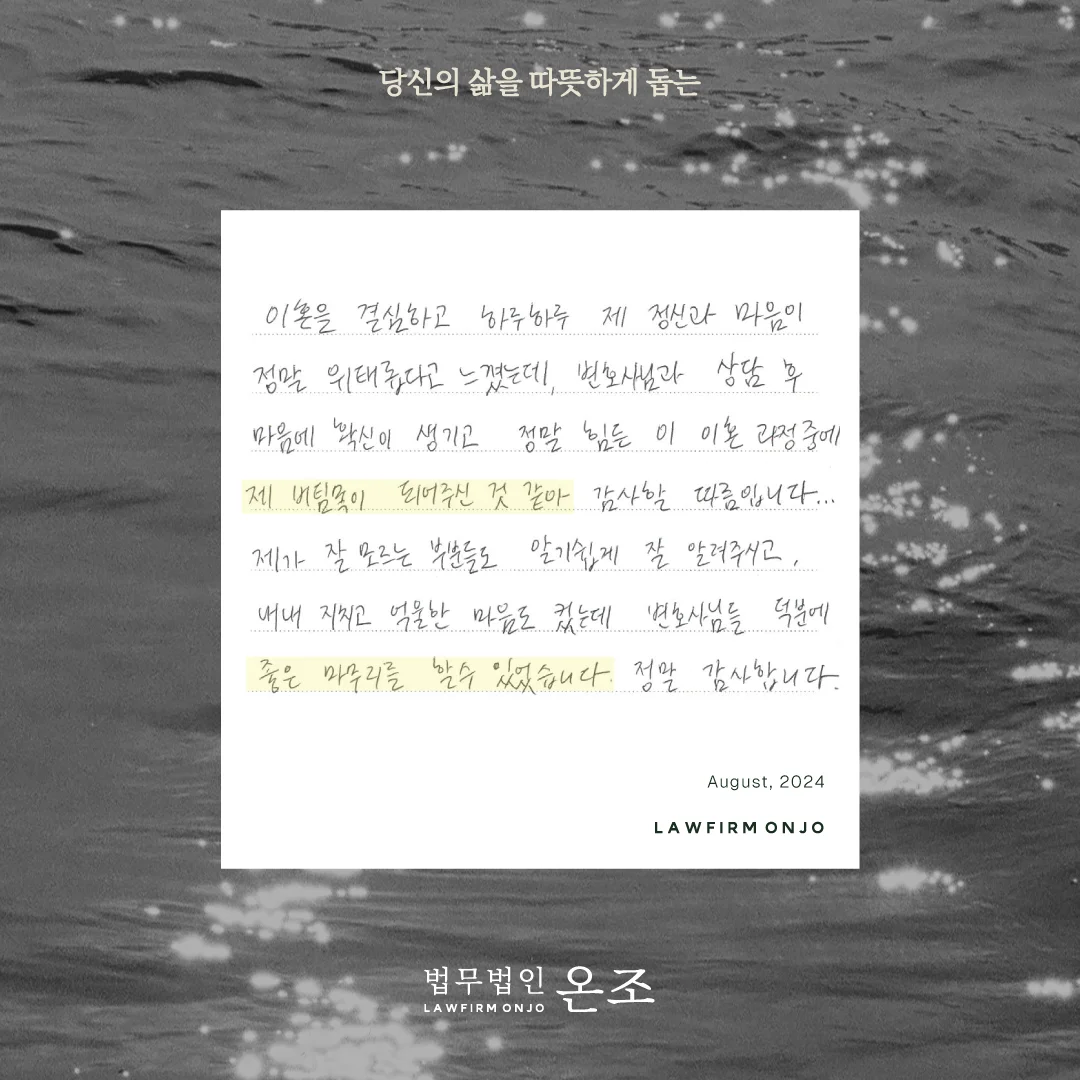 당신의 삶을 따뜻하게 돕는
이혼을 결심하고 하루하루 제 정신과 마음이
정말 위태롭다고 느꼈는데, 변호사님과 상담 후
마음에 확신이 생기고 정말 힘든 이 이혼 과정중에
제 버팀목이 되어주신 것 같아 감사할 따름입니다...
제가 잘 모르는 부분들도 알기쉽게 잘 알려주시고,
내내 지치고 억울한 마음도 컸는데 변호사님들 덕분에
좋은 마무리를 할수 있었습니다. 정말 감사합니다.
August, 2024
LAWFIRM ONJO
법무법인 온조
LAWFIRM ONJO